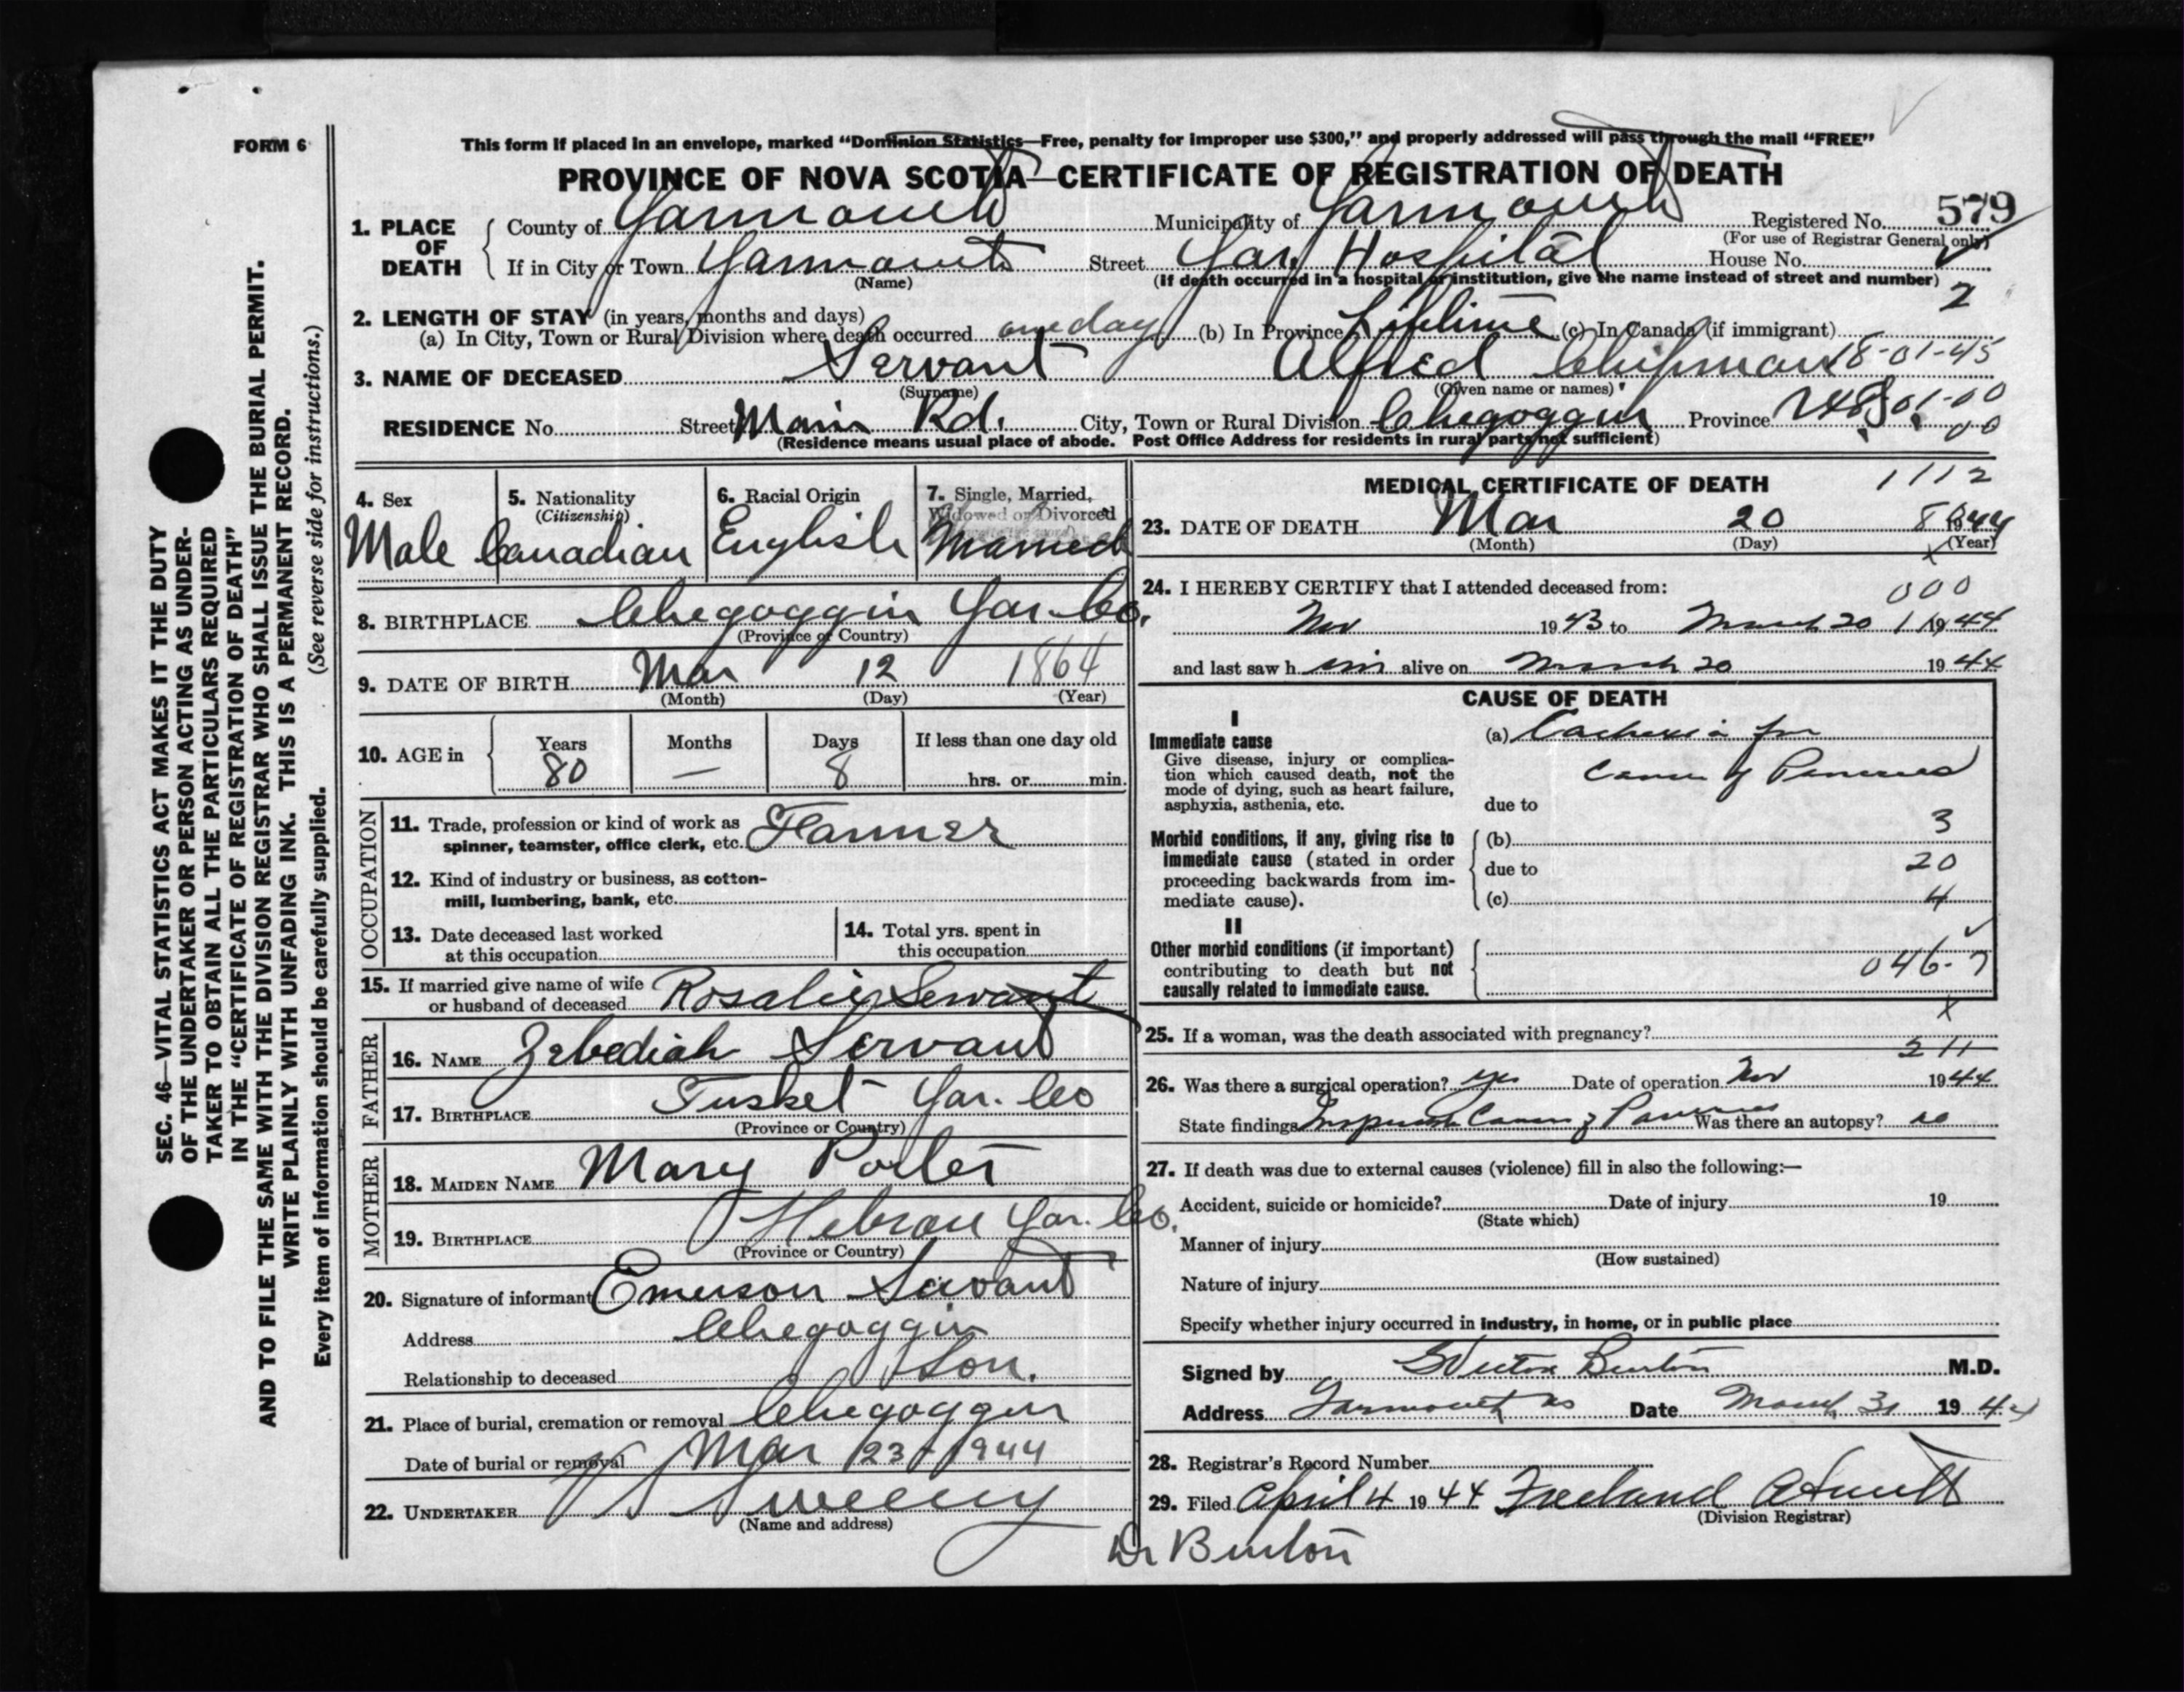 FORM 6
This form if placed in an envelope, marked “Dominion Statistics—Free, penalty for improper use $300,” and properly addressed will pass through the mail “FREE”
PROVINCE OF NOVA SCOTIA—CERTIFICATE OF REGISTRATION OF DEATH
1. PLACE OF DEATH
County of Yarmouth Municipality of Yarmouth Registered No. 579
(For use of Registrar General only)
If in City or Town Yarmouth Street Yar. Hospital House No.
(Name) (If death occurred in a hospital or institution, give the name instead of street and number)
2
2. LENGTH OF STAY (in years, months and days)
(a) In City, Town or Rural Division where death occurred one day (b) In Province Lifetime (c) In Canada (if immigrant)
3. NAME OF DECEASED Servant Alfred Chipman 18-01-45
(Surname) (Given name or names)
RESIDENCE No. Street Main Rd. City, Town or Rural Division Chegoggin Province N.S. 01-00
00
(Residence means usual place of abode. Post Office Address for residents in rural parts not sufficient)
4. Sex
Male
5. Nationality
(Citizenship)
Canadian
6. Racial Origin
English
7. Single, Married,
Widowed or Divorced
Married
8. BIRTHPLACE Chegoggin Yar. Co.
(Province or Country)
9. DATE OF BIRTH Mar 12 1864
(Month) (Day) (Year)
10. AGE in
Years Months Days If less than one day old
80 — 8 hrs. or min.
OCCUPATION
11. Trade, profession or kind of work as
spinner, teamster, office clerk, etc. Farmer
12. Kind of industry or business, as cotton-
mill, lumbering, bank, etc.
13. Date deceased last worked
at this occupation
14. Total yrs. spent in
this occupation
15. If married give name of wife
or husband of deceased Rosalie Servant
FATHER
16. NAME Zebediah Servant
17. BIRTHPLACE Tusket Yar. Co
(Province or Country)
MOTHER
18. MAIDEN NAME Mary Porter
19. BIRTHPLACE Hebron Yar. Co.
(Province or Country)
20. Signature of informant Emerson Servant
Address Chegoggin
Relationship to deceased Son.
21. Place of burial, cremation or removal Chegoggin
Date of burial or removal Mar 23 1944
22. UNDERTAKER Sweeny
(Name and address)
MEDICAL CERTIFICATE OF DEATH 1112
23. DATE OF DEATH Mar 20 1944
(Month) (Day) (Year)
24. I HEREBY CERTIFY that I attended deceased from:
000
Nov 1943 to March 20 1944
and last saw him alive on March 20 1944
CAUSE OF DEATH
I
Immediate cause
Give disease, injury or complica-
tion which caused death, not the
mode of dying, such as heart failure,
asphyxia, asthenia, etc.
(a) Cachexia from
Cancer of Pancreas
due to
Morbid conditions, if any, giving rise to
immediate cause (stated in order
proceeding backwards from im-
mediate cause).
(b) 3
due to 20
(c) 4
II
Other morbid conditions (if important)
contributing to death but not
causally related to immediate cause.
046-7
25. If a woman, was the death associated with pregnancy?
211
26. Was there a surgical operation? yes Date of operation Nov 1944
State findings Cancer of Pancreas Was there an autopsy? no
27. If death was due to external causes (violence) fill in also the following:—
Accident, suicide or homicide? Date of injury 19
(State which)
Manner of injury
(How sustained)
Nature of injury
Specify whether injury occurred in industry, in home, or in public place
Signed by Burton M.D.
Address Yarmouth NS Date March 31 1944
28. Registrar's Record Number
29. Filed April 4 1944 Freeland
(Division Registrar)
Dr Burton
SEC. 46—VITAL STATISTICS ACT MAKES IT THE DUTY
OF THE UNDERTAKER OR PERSON ACTING AS UNDER-
TAKER TO OBTAIN ALL THE PARTICULARS REQUIRED
IN THE “CERTIFICATE OF REGISTRATION OF DEATH”
AND TO FILE THE SAME WITH THE DIVISION REGISTRAR WHO SHALL ISSUE THE BURIAL PERMIT.
WRITE PLAINLY WITH UNFADING INK. THIS IS A PERMANENT RECORD.
Every item of information should be carefully supplied. (See reverse side for instructions.)